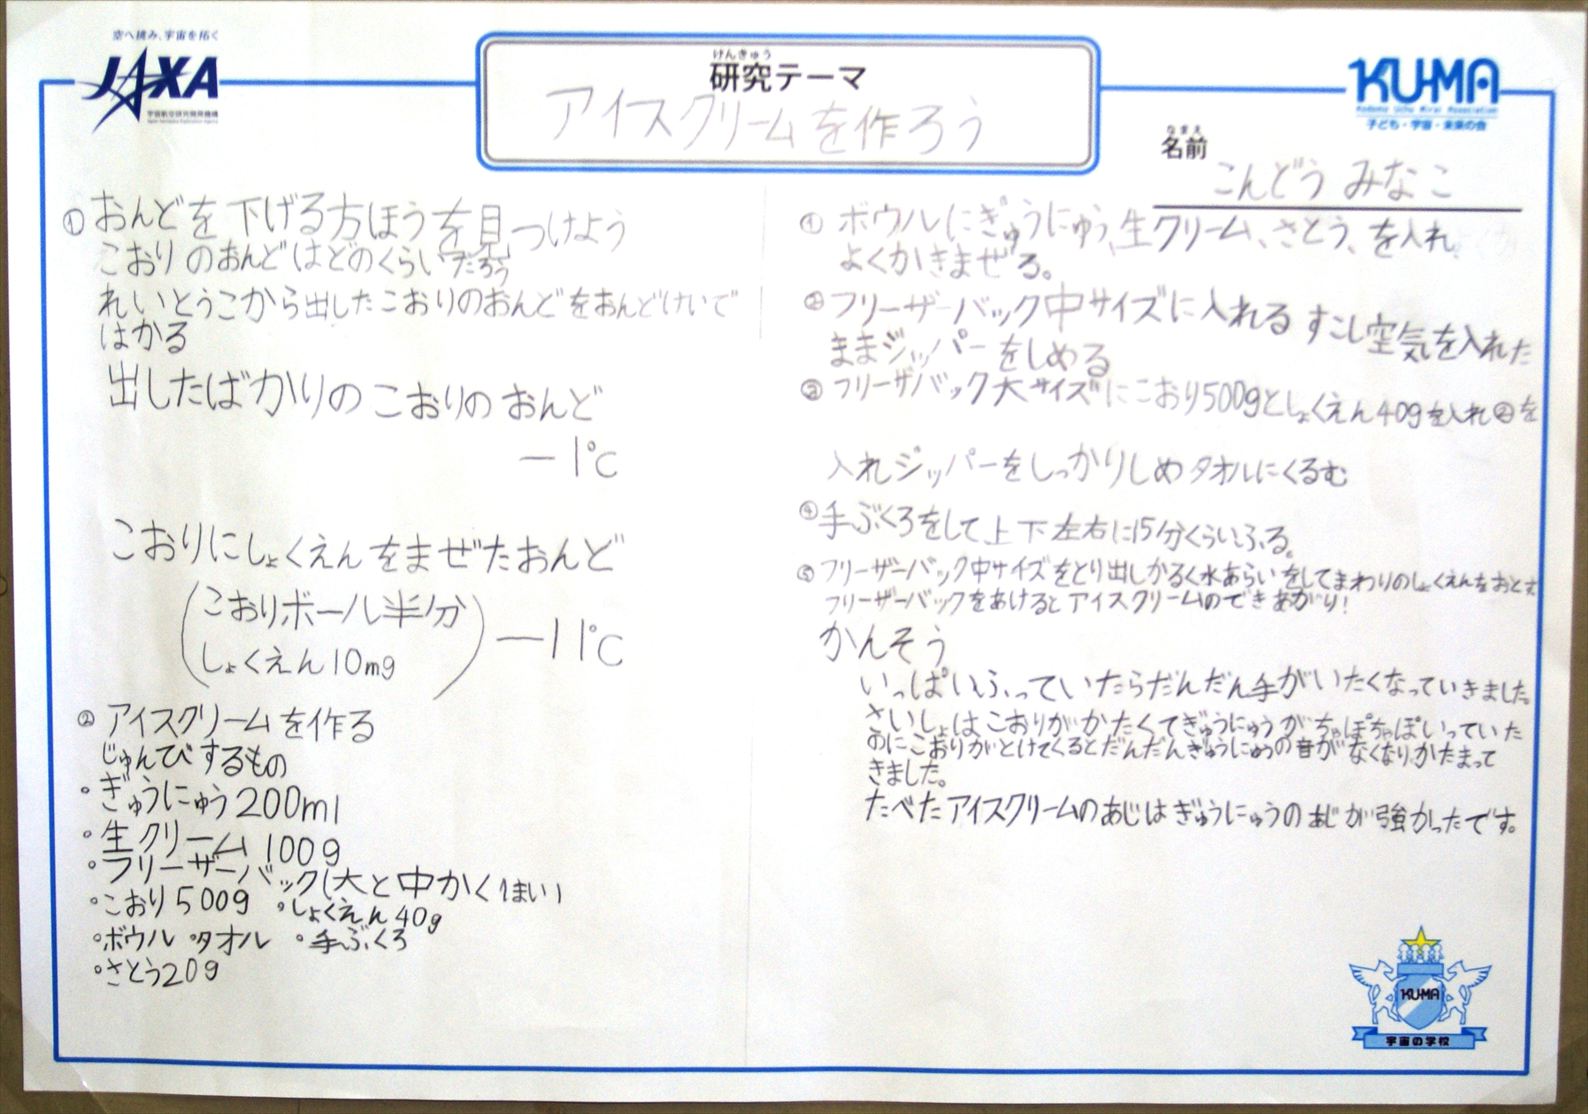 空へ挑み、宇宙を拓く
JAXA
宇宙航空研究開発機構
Japan Aerospace Exploration Agency
けんきゅう
研究テーマ
アイスクリームを作ろう
KU-MA
Kodomo Uchu Mirai Association
子ども・宇宙・未来の会
なまえ
名前
こんどう みなこ
① おんどを下げる方ほうを見つけよう
こおりのおんどはどのくらいだろう
れいとうこから出したこおりのおんどをおんどけいで
はかる
出したばかりのこおりのおんど
－1℃
こおりにしょくえんをまぜたおんど
(こおりボール半分
しょくえん10mg) －11℃
② アイスクリームを作る
じゅんびするもの
・ぎゅうにゅう200ml
・生クリーム 100g
・フリーザーバック(大と中かく1まい)
・こおり500g ・しょくえん40g
・ボウル ・タオル ・手ぶくろ
・さとう20g
① ボウルにぎゅうにゅう、生クリーム、さとう、を入れ
よくかきまぜる。
② フリーザーバック中サイズに入れる すこし空気を入れた
ままジッパーをしめる
③ フリーザバック大サイズにこおり500gとしょくえん40gを入れ②を
入れジッパーをしっかりしめタオルにくるむ
④ 手ぶくろをして上下左右に15分くらいふる。
⑤ フリーザーバック中サイズをとり出しかるく水あらいをしてまわりのしょくえんをおとす
フリーザーバックをあけるとアイスクリームのできあがり!
かんそう
いっぱいふっていたらだんだん手がいたくなっていきました。
さいしょはこおりがかたくてぎゅうにゅうがちゃぽちゃぽいっていた
おにこおりがとけてくるとだんだんぎゅうにゅうの音がなくなりかたまって
きました。
たべたアイスクリームのあじはぎゅうにゅうのあじが強かったです。
KUMA
宇宙の学校